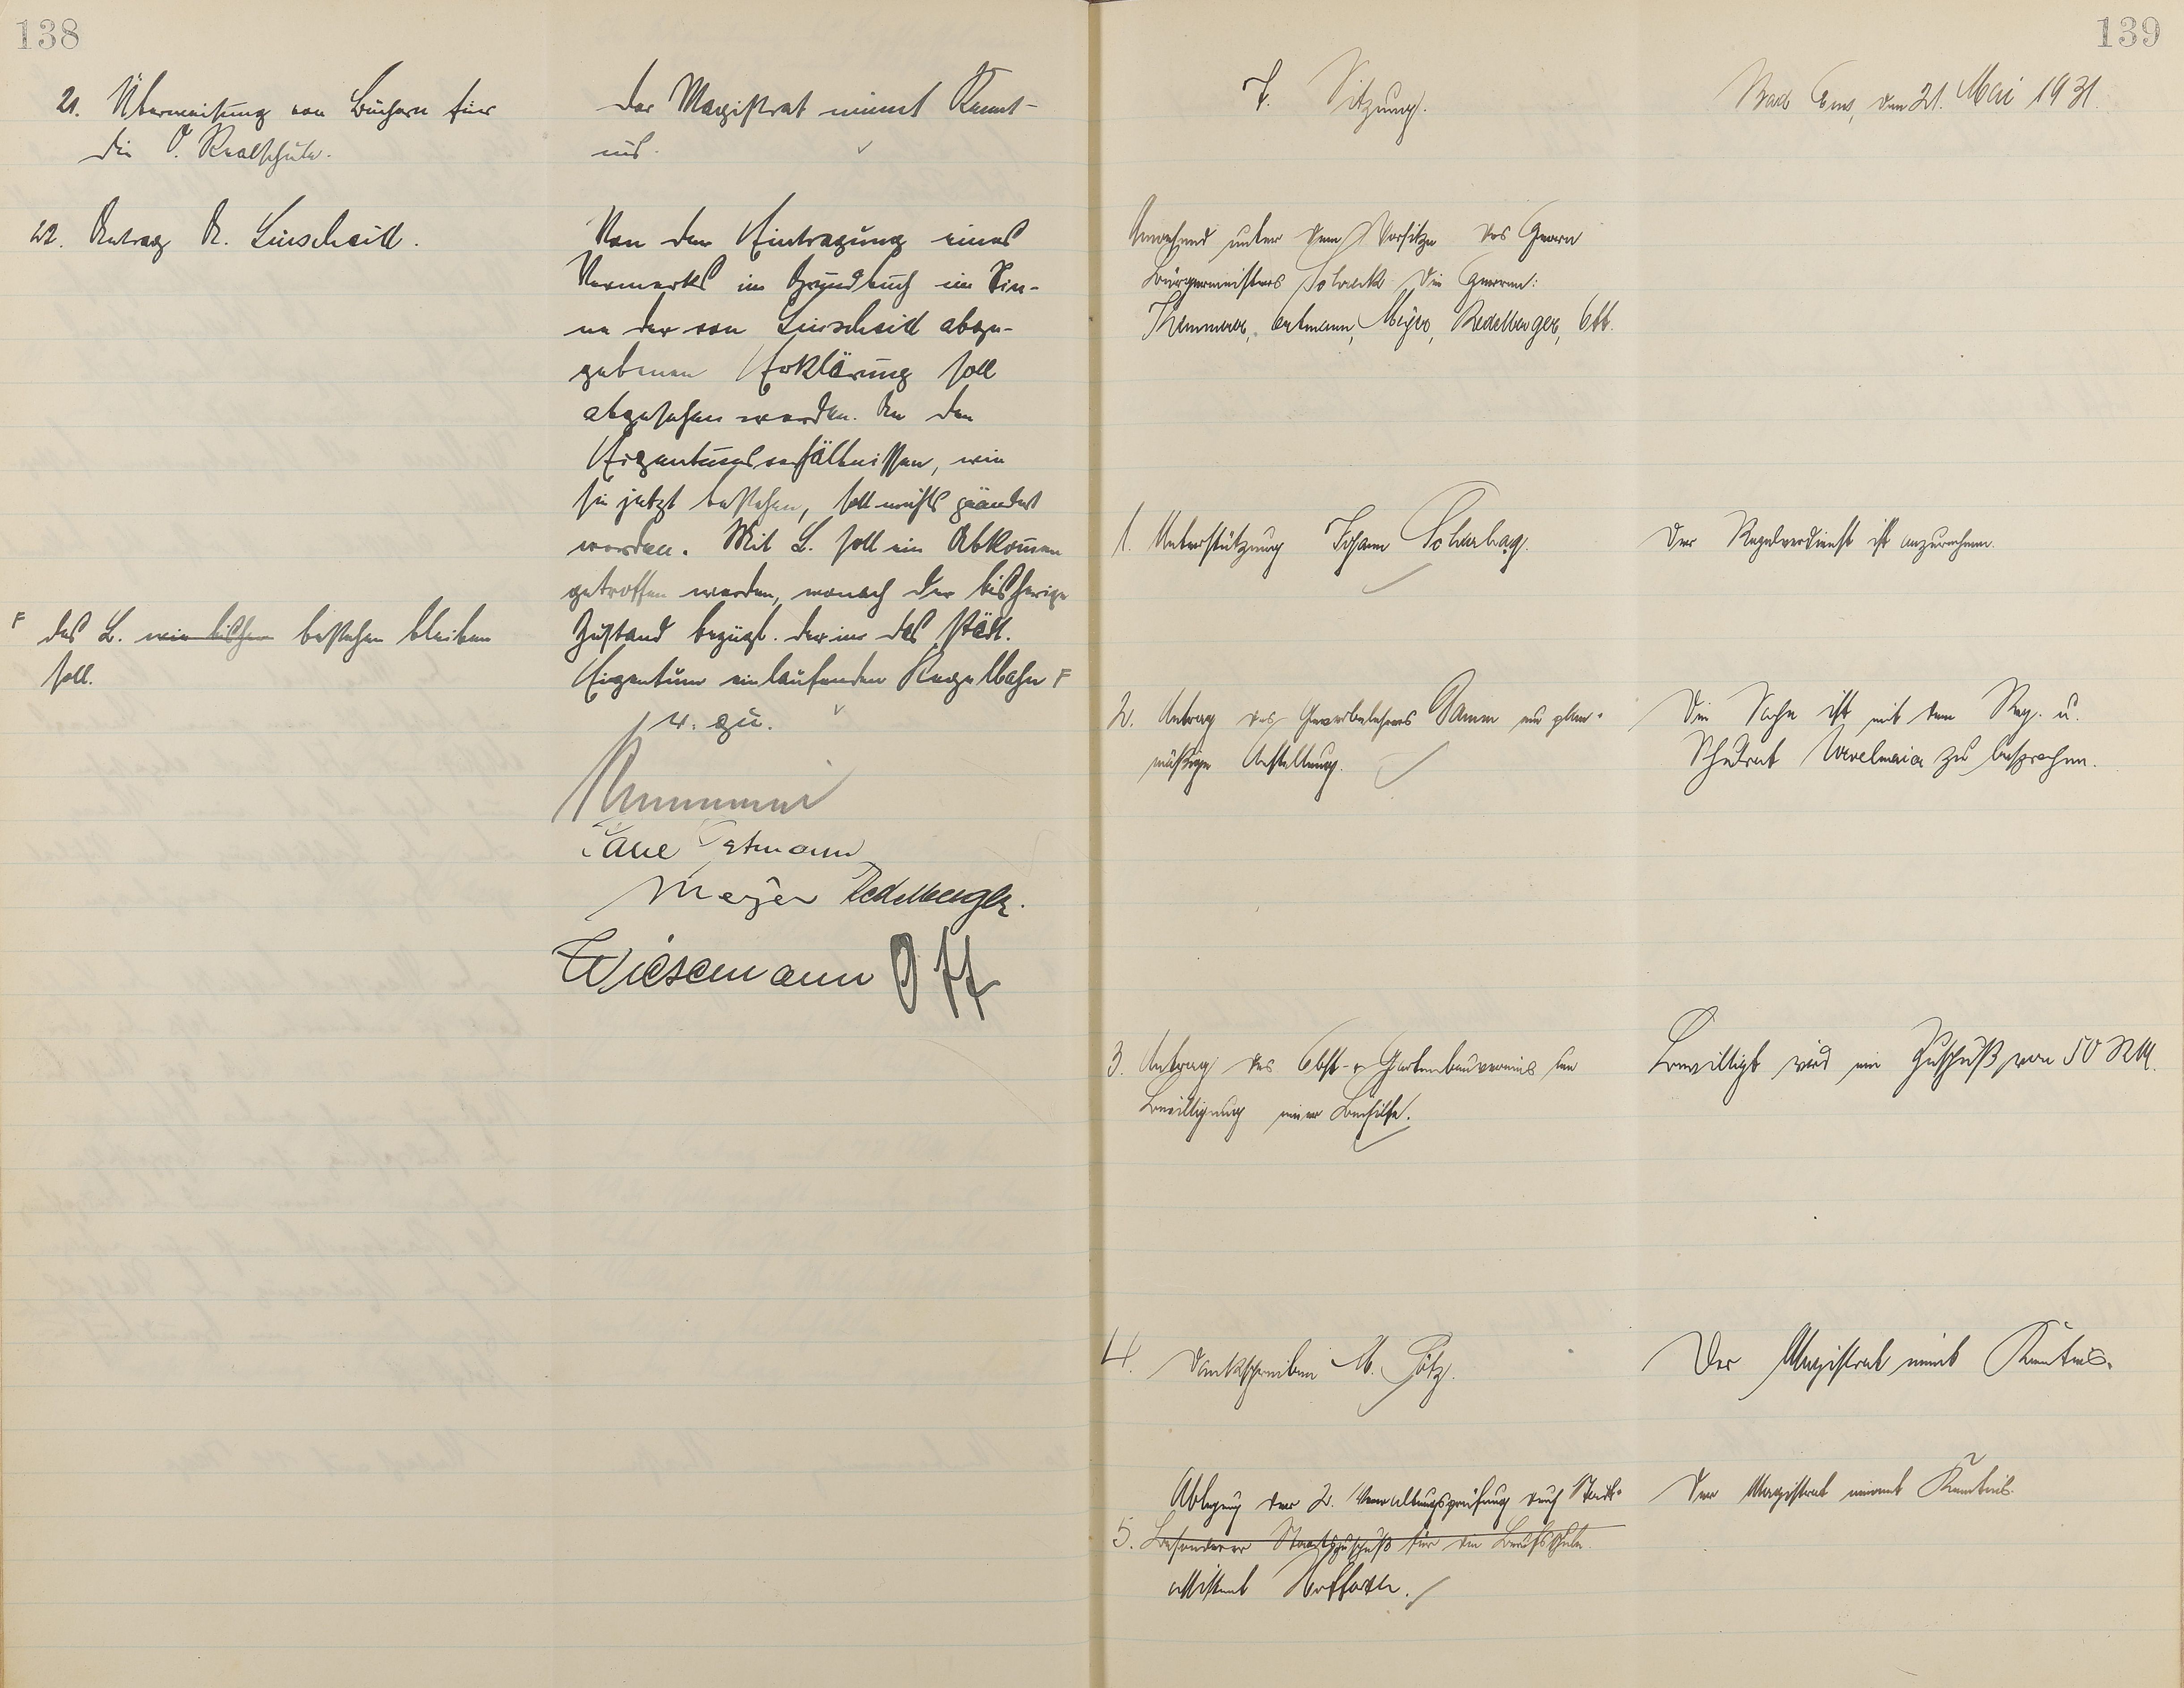 138
21. Überweisung von Büchern für
die O. Realschule.
Der Magistrat nimmt Kennt-
nis.
22. Antrag A. Linscheid.
Von der Eintragung eines
Vermerks im Grundbuch im Sin-
ne der von Linscheid abge-
gebenen Erklärung soll
abgesehen werden. An den
Eigentumsverhältnissen, wie
sie jetzt bestehen, soll nichts geändert
werden. Mit L. soll ein Abkommen
getroffen werden, wonach der bisherige
Zustand bezügl. der in das städt.
Eigentum einlaufenden Kegelbahn F
F des L. wie bisher bestehen bleiben
soll.
v. g. u.
Meyer Redelberger.
Wiesemann Ott
139
7. Sitzung.
Bad Ems, den 21. Mai 1931.
Anwesend unter dem Vorsitze des Herrn
Bürgermeisters die Herren:
Thımmerer, Oertmann, Meyer, Redelberger, Ott.
1. Unterstützung Johann Scharbag.
Der Regelverdienst ist anzurechnen.
2. Antrag des Gewerbelehrers Damm um plan-
mäßige Anstellung.
Die Sache ist mit dem Reg. u.
Schulrat zu besprechen.
3. Antrag des Obst- u. Gartenbauvereins um
Bewilligung einer Beihilfe.
Bewilligt wird ein Zuschuß von 50 RM.
4. Dankschreiben M. Götz.
Der Magistrat nimmt Kenntnis.
Ablegung der 2. Verwaltungsprüfung durch Stadt-
5. Besonderer Staatszuschuß für die Berufsschule.
assistent
Der Magistrat nimmt Kenntnis.